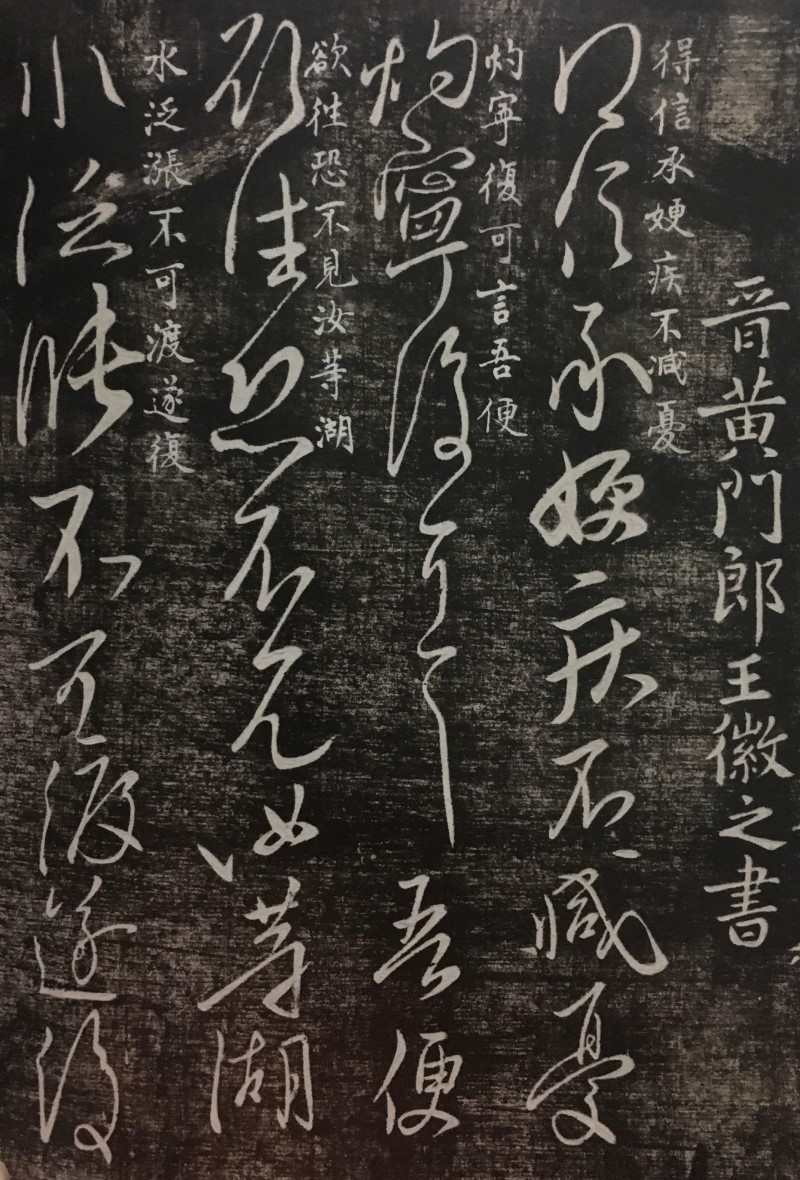 晉黄門郎王徽之書
得信承㛐疾不減憂
得信承㛐疾不減憂
灼寧復可言吾便
灼寧復可言吾便
欲徃恐不見汝等湖
欲往恐不見汝等湖
水泛漲不可渡遂復
水泛漲不可渡遂復